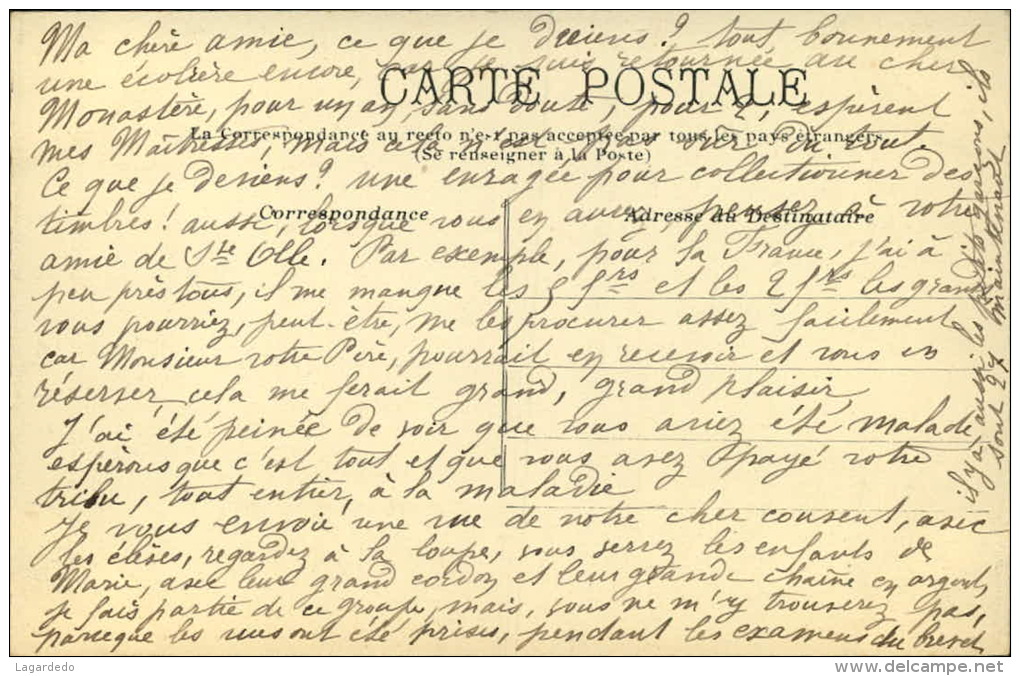 Ma chère amie, ce que je deviens? tout bonnement
une écolière encore, car je suis retournée au cher
CARTE POSTALE
Monastère, pour un an, sans doute, pour 2, espèrent
La Correspondance au recto n'est pas acceptée par tous les pays étrangers
mes Maîtresses, mais cela n'est pas sûr du tout.
(Se renseigner à la Poste)
Ce que je deviens? une enragée pour collectionner des
timbres! aussi, lorsque vous en aurez, pensez à votre
Correspondance
Adresse du Destinataire
amie de Ste Olle. Par exemple, pour la France, j'ai à
peu près tous, il me manque les 5 frs et les 2 frs les grands
vous pourriez, peut-être, me les procurer assez facilement
car Monsieur votre Père, pourrait en recevoir et vous en
réserver, cela me ferait grand, grand plaisir,
J'ai été peinée de voir que vous aviez été malade
espérons que c'est tout et que vous avez payé votre
tribu, tout entier, à la maladie
Je vous envoie une vue de notre cher couvent, avec
les élèves, regardez à la loupe, vous verrez les enfants de
Marie, avec leur grand cordon et leur grande chaîne en argent,
je fais partie de ce groupe, mais, vous ne m'y trouverez pas,
parceque les vues ont été prises, pendant les examens du brevet
il y a aussi les petits garçons, ils
sont 27 maintenant
Lagardedo
www.delcampe.net